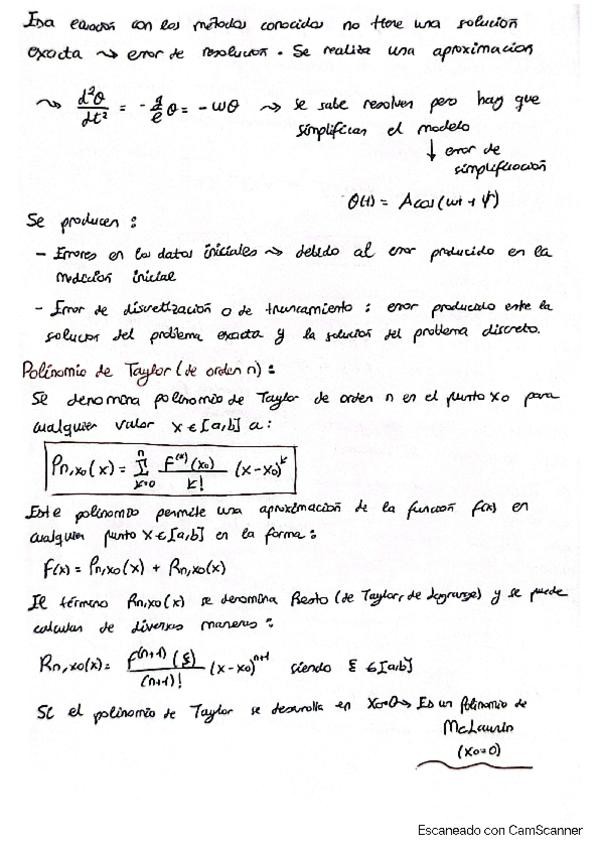 Esa ecuación con los métodos conocidos no tiene una solución
exacta ⇝ error de resolución. Se realiza una aproximación
⇝ d²θ/dt² = - g/e θ = - wθ ⇝ se sabe resolver pero hay que
simplificar el modelo
↓ error de
simplificación
θ(t) = A cos(wt + ψ)
Se producen :
- Errores en los datos iniciales ⇝ debido al error producido en la
medición inicial
- Error de discretización o de truncamiento : error producido entre la
solución del problema exacta y la solución del problema discreto.
Polinomio de Taylor (de orden n) :
Se denomina polinomio de Taylor de orden n en el punto x0 para
cualquier valor x ∈ [a,b] a:
Pn,x0(x) = Σ(k=0 → n) F^(k)(x0)/k! (x-x0)^k
Este polinomio permite una aproximación de la función f(x) en
cualquier punto x ∈ [a,b] en la forma:
F(x) = Pn,x0(x) + Rn,x0(x)
El término Rn,x0(x) se denomina Resto (de Taylor, de Lagrange) y se puede
calcular de diversas maneras:
Rn,x0(x) = f^(n+1)(ξ)/(n+1)! (x-x0)^n+1 siendo ξ ∈ [a,b]
Si el polinomio de Taylor se desarrolla en x0=0 → Es un Polinomio de
McLaurin
(x0=0)
Escaneado con CamScanner